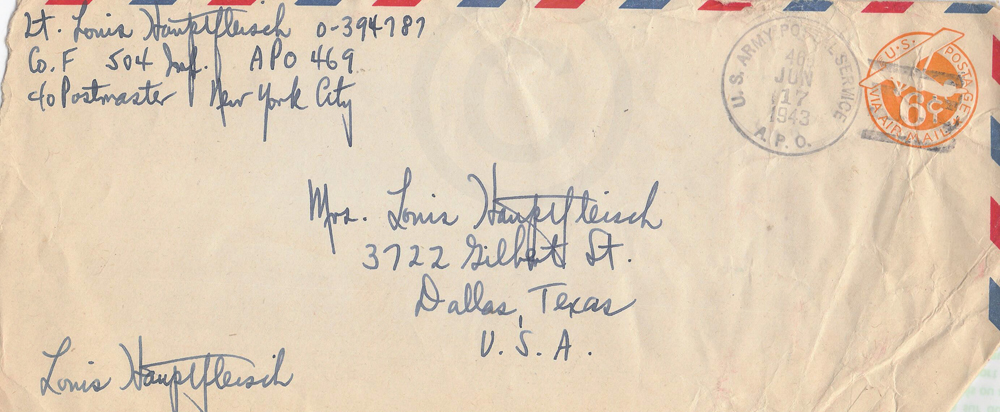 Lt. Louis Hauptfleisch O-394787
Co. F 504 Inf. APO 469
c/o Postmaster New York City
U.S. ARMY POSTAL SERVICE
JUN
17
1943
A.P.O.
U.S. POSTAGE
6¢
VIA AIR MAIL
Mrs. Louis Hauptfleisch
3722 Gilbert St.
Dallas, Texas
U.S.A.
Louis Hauptfleisch